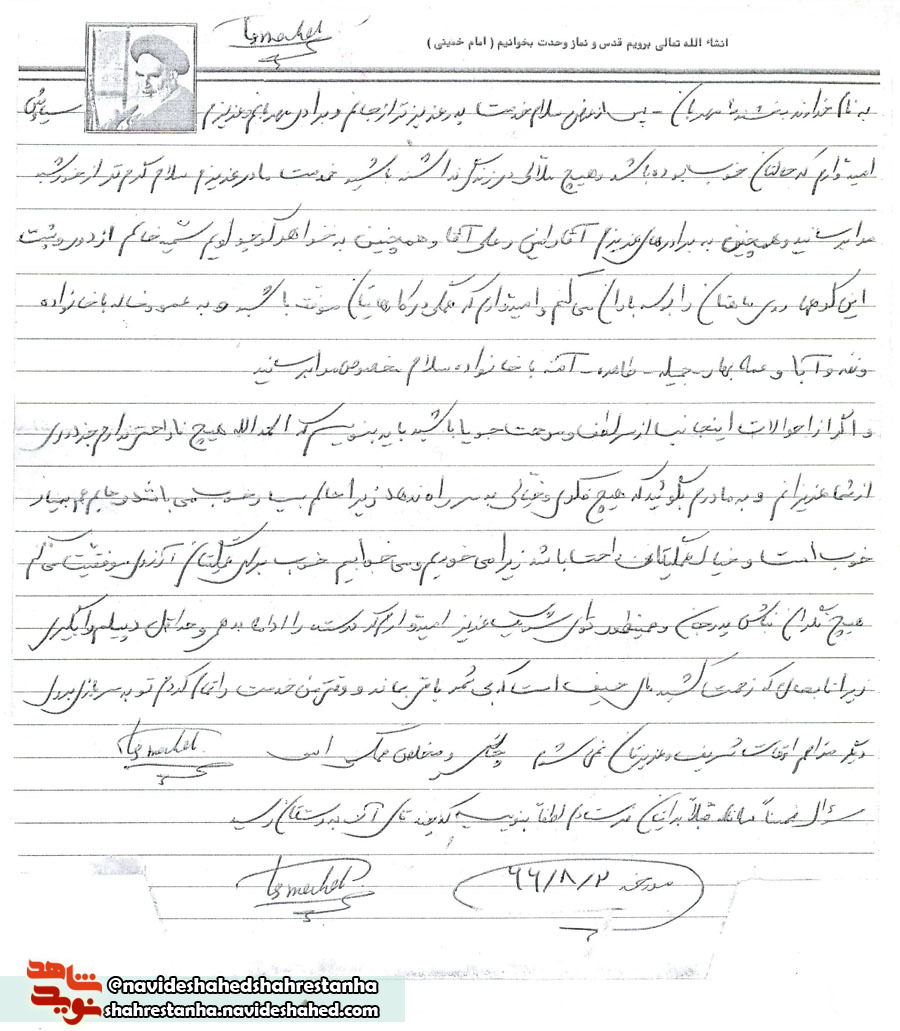 انشاء الله تعالی برویم قدس و نماز وحدت بخوانیم ( امام خمینی )
Ismahel
به نام خداوند بخشنده مهربان - پس از عرض سلام خدمت پدر عزیزتر از جانم و برادر مهربانم و عزیزم
امیدوارم که حالتان خوب بوده باشد و هیچ ملالی در زندگی نداشته باشید خدمت مادر عزیزم سلام گرم تر از خورشید
مرا برسانید و همچنین به برادرهای عزیزم آقا رامین و علی آقا و همچنین به خواهر کوچولویم سمیه خانم از دور و پشت
این کوهها روی ماهتان را بوسه باران می کنم و امیدوارم که همگی در کارهایتان موفق باشید و به عمو و خاله با خانواده
و ننه و آبا و عمه بهار - جمیله - طاهره - آمنه با خانواده سلام مخصوص مرا برسانید
و اگر از احوالات اینجانب از سر لطف و مرحمت جویا باشید باید بنویسم که الحمدالله هیچ ناراحتی ندارم جز دوری
از شما عزیزانم و به مادرم بگوئید که هیچ فکری و خیالی به سر راه ندهد زیرا حالم بسیار خوب می باشد و جایم هم بسیار
خوب است و خیال همگیتان راحت باشد زیرا می خوریم و می خوابیم خوب برای همگیتان آرزوی موفقیت می کنم
هیچ نگران نباش پدر جان و همینطور تو ای عزیز امیدوارم که مدرسه را ادامه بدهی و حداقل دیپلم را بگیری
زیرا تا بحال که زحمت کشیدی حیف است که بی ثمر باقی بماند و وقتی من خدمت را تمام کردم تو به سربازی بروی
دیگر مزاحم اوقات شریف و عزیزتان نمی شوم و مخلص همگی Ismahel
سؤال ضمناً قبلاً برایتان فرستادم لطفاً بنویسید که چند تای آن به دستتان رسید
مورخه ۶۶/۸/۲ Ismahel
شاهد
نوید
@navideshahedshahrestanha
shahrestanha.navideshahed.com